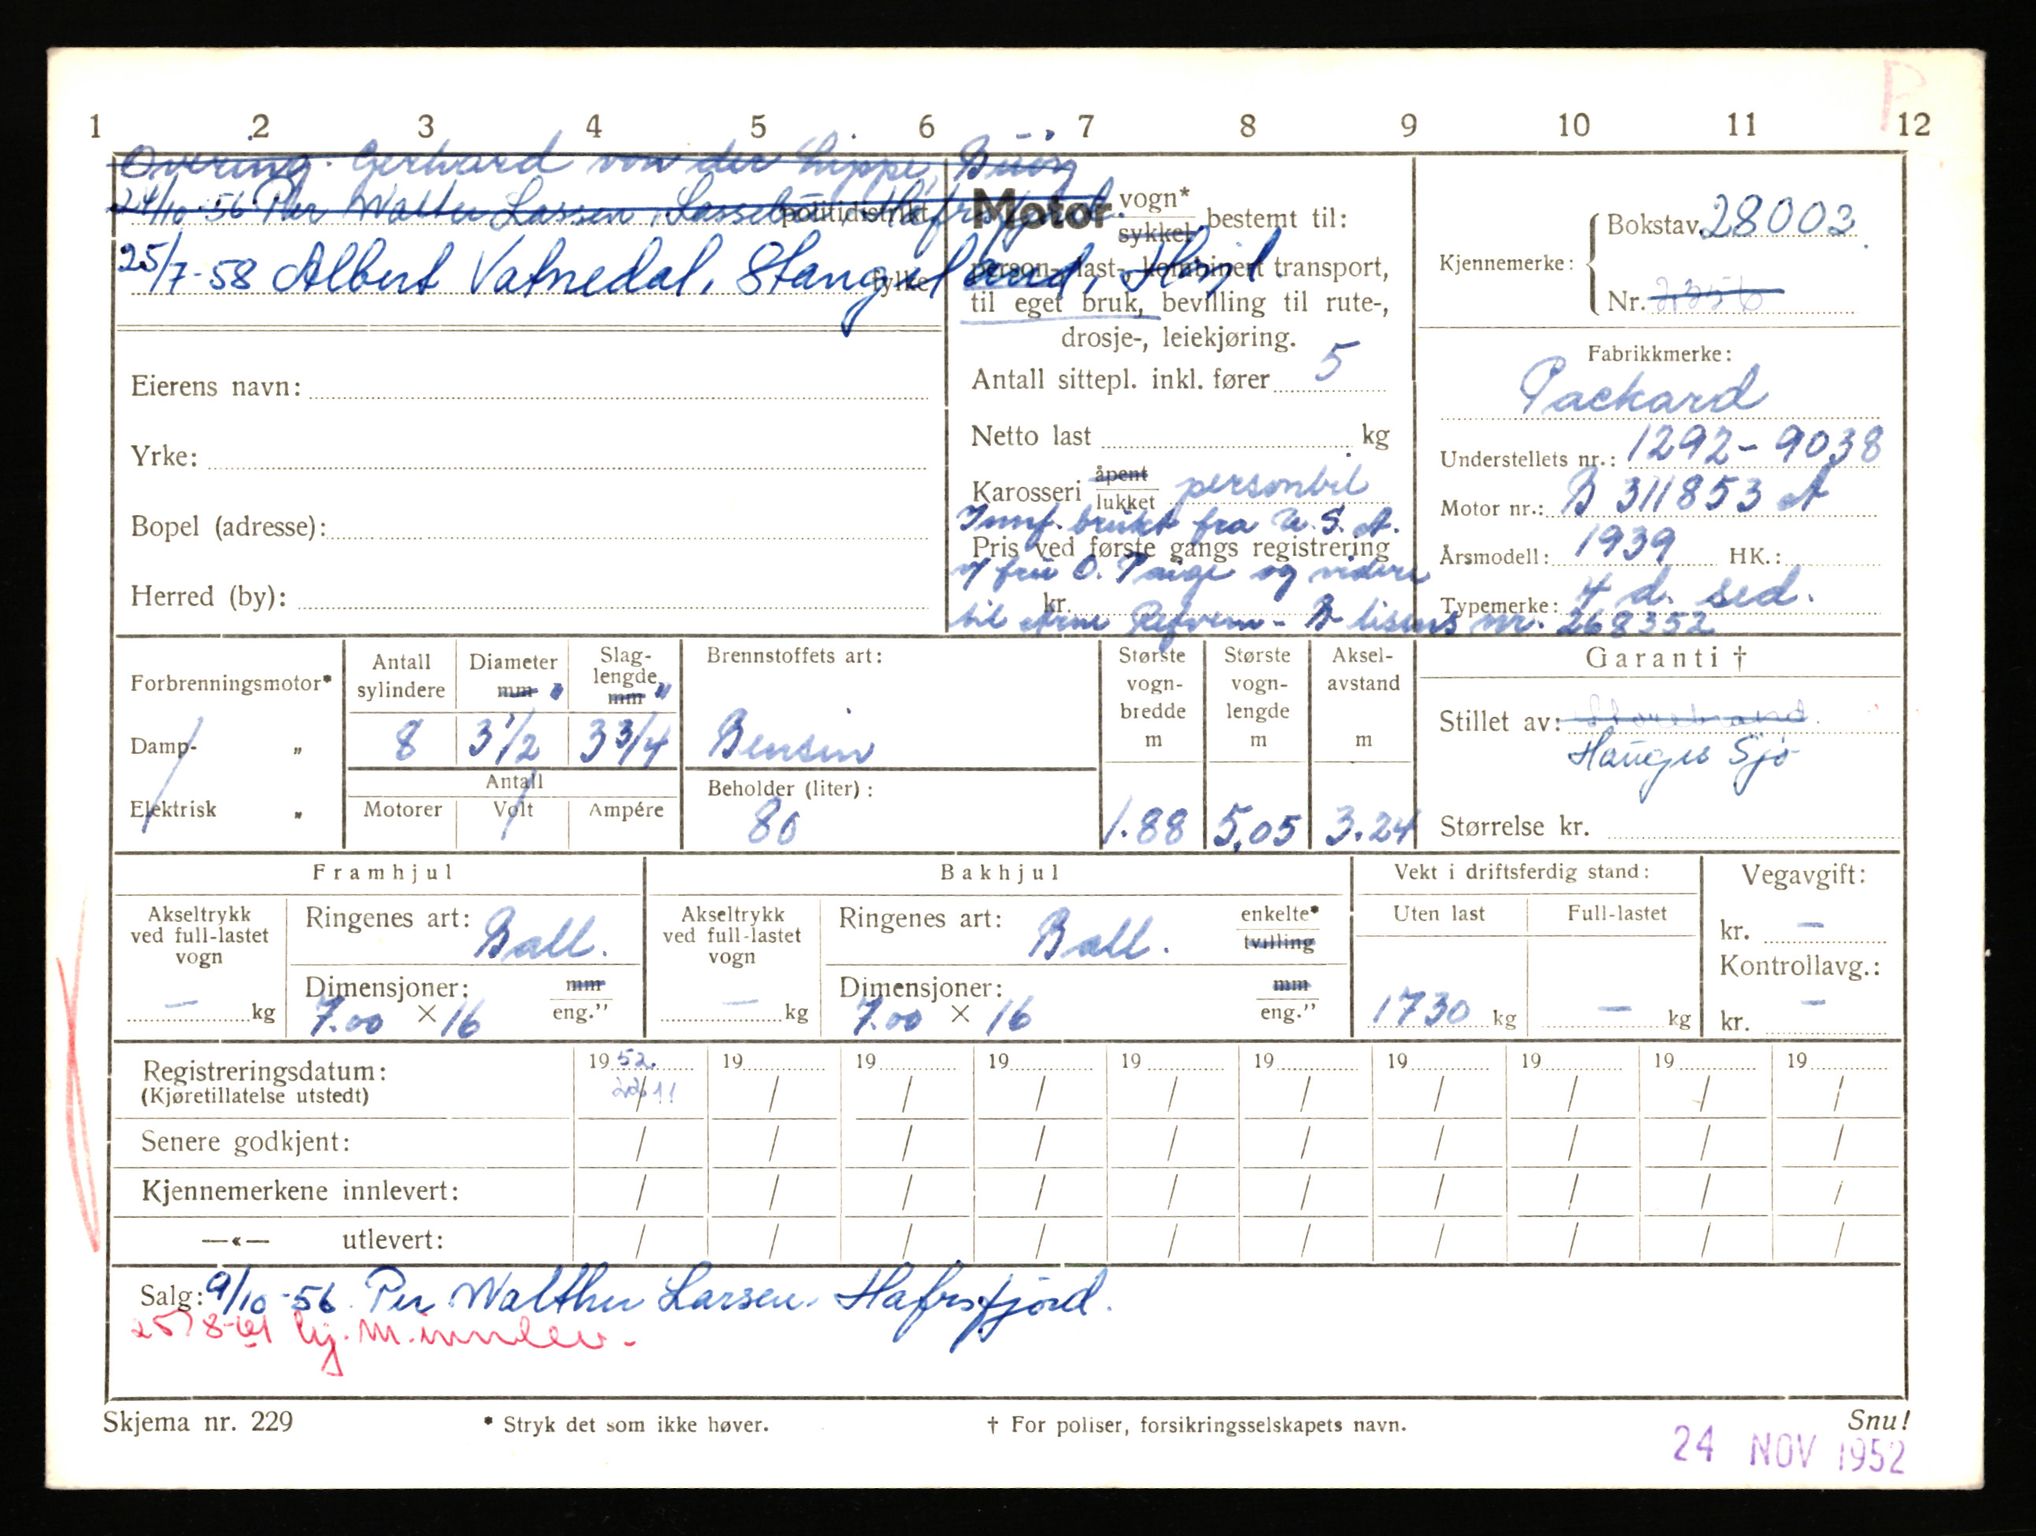 1 2 3 4 5 6 7 8 9 10 11 12
Gerhard von der Lippe,
24/10-56 Per Walter Larsen, politidistrikt
25/7-58 Albert Vatnedal, Stangeland, fylke
Eierens navn:
Yrke:
Bopel (adresse):
Herred (by):
Motor vogn* sykkel bestemt til:
person-, last-, kombinert transport,
til eget bruk, bevilling til rute-,
drosje-, leiekjøring.
Antall sittepl. inkl. fører 5
Netto last kg
Karosseri åpent lukket personbil
Innf. brukt fra U.S.A.
Pris ved første gangs registrering
v/ fru O. Paige og videre
kr.
til Arne Refvem - B lisens nr. 268352
Kjennemerke: Bokstav 28003
Nr.
Fabrikkmerke:
Packard
Understellets nr.: 1292-9038
Motor nr.: B 311853 A
Årsmodell: 1939 HK.:
Typemerke: 4 d. sed.
Forbrenningsmotor*
Damp- „
Elektrisk „
Antall sylindere 8
Diameter mm " 3 1/2
Slag-lengde mm " 3 3/4
Antall
Motorer Volt Ampére
Brennstoffets art:
Bensin
Beholder (liter):
80
Største vogn-bredde m 1.88
Største vogn-lengde m 5,05
Aksel-avstand m 3.24
Garanti †
Stillet av: Storebrand.
Hauges Sjø
Størrelse kr.
Framhjul
Akseltrykk ved full-lastet vogn — kg
Ringenes art: Ball.
Dimensjoner: mm eng."
7.00 × 16
Bakhjul
Akseltrykk ved full-lastet vogn — kg
Ringenes art: Ball. enkelte* tvilling
Dimensjoner: mm eng."
7.00 × 16
Vekt i driftsferdig stand:
Uten last Full-lastet
1730 kg — kg
Vegavgift:
kr. —
Kontrollavg.:
kr. —
Registreringsdatum: 1952. 19 19 19 19 19 19 19 19 19
(Kjøretillatelse utstedt) 22/11 / / / / / / / / /
Senere godkjent: / / / / / / / / / /
Kjennemerkene innlevert: / / / / / / / / / /
—«— utlevert: / / / / / / / / / /
Salg: 9/10-56. Per Walther Larsen. Hafrsfjord.
25/8-61 kj. m. innlev.
Skjema nr. 229 * Stryk det som ikke høver. † For poliser, forsikringsselskapets navn. Snu!
24 NOV 1952